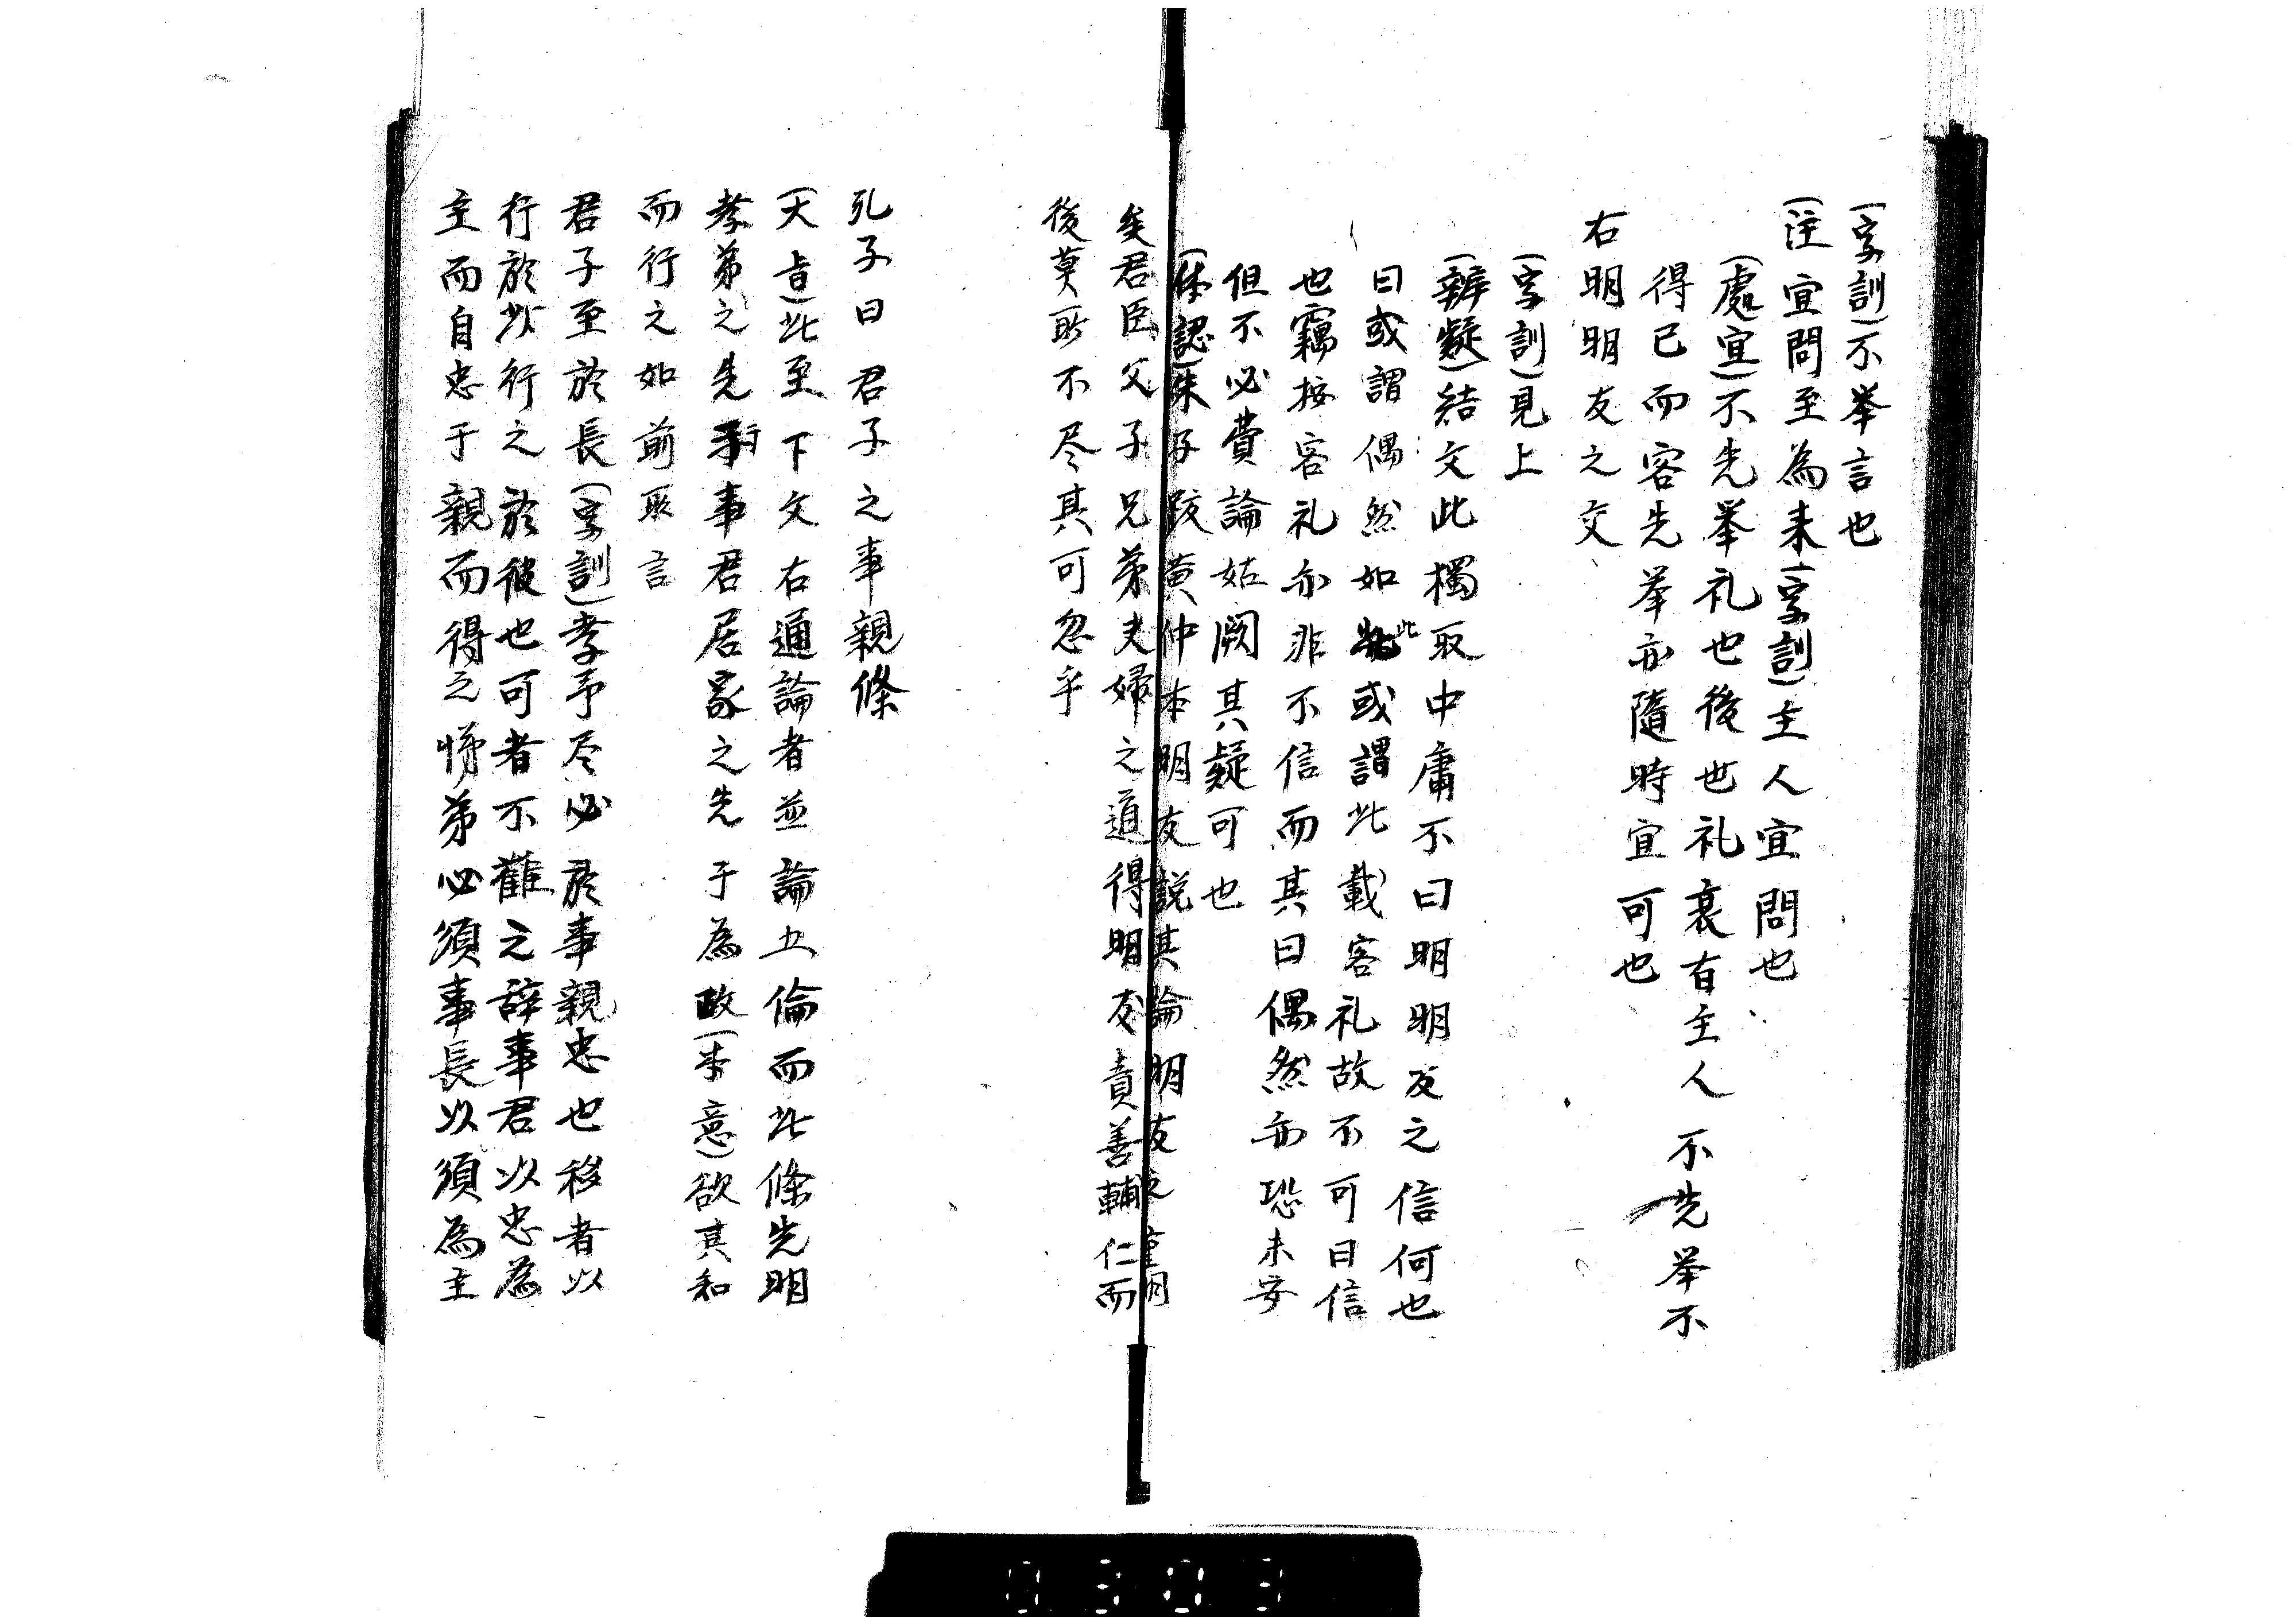 (字訓)不挙言也
(注 宜問至為来(字訓)主人宜問也
(處宜)不先挙礼也後也礼裏有主人不先挙不
得已而容先挙亦隨時宜可也
右明明友之交
(字訓)見上
(辨疑)結文此獨取中庸不曰明明友之信何也
曰或謂偶然如此或謂此載客礼故不可曰信
也竊按客礼亦非不信而其曰偶然亦恐未安
但不必費論姑闕其疑可也
(体認)朱子跋黄仲本明友説其論明友
矣君臣父子兄弟夫婦之道得明友責善輔仁而
後莫所不尽其可忽乎
孔子曰君子之事親條
(大旨)此至下文右通論者並論五倫而此條先明
孝弟之先行事君居家之先于為政(本意)欲其和
而行之如前所言
君子至於長(字訓)孝予尽必於事親忠也移者以
行於此行之於彼也可者不難之辞事君以忠為
主而自忠于親而得之悌弟必須事長以須為主
0303